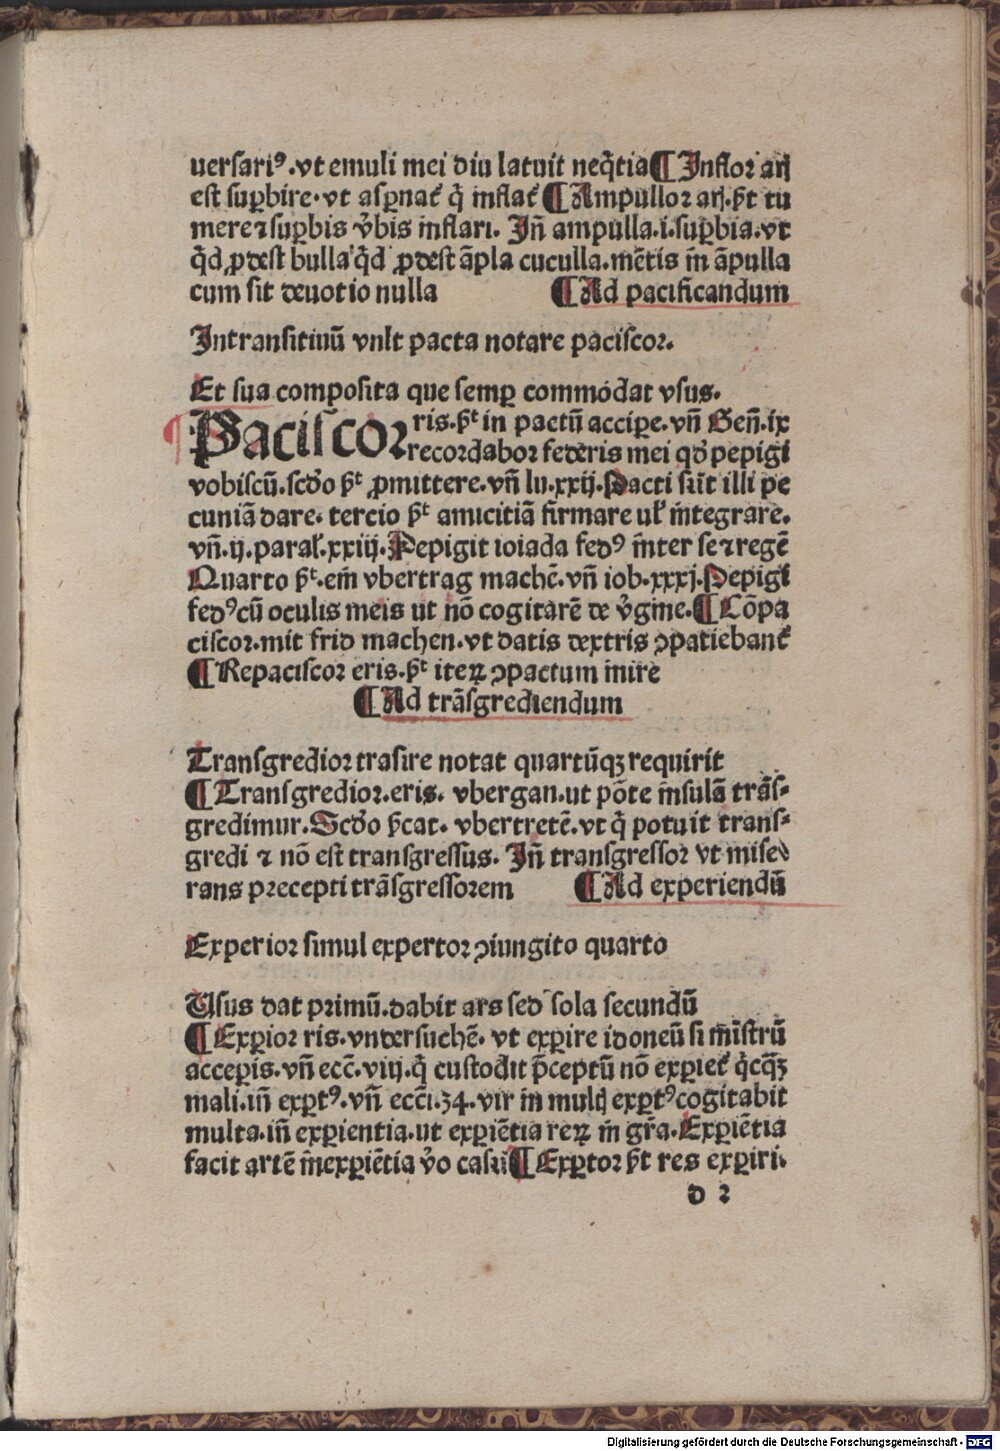 uersariꝰ.vt emuli mei diu latuit neq̃tia¶Inflor arj
est suꝑbire.vt asꝑnat᷑ q̃ inflat᷑ ¶Ampullor arj.p̃t tu
mere ⁊ suꝑbis v̾bis inflari. Jñ ampulla.i.suꝑbia.vt
q̃d ꝓdest bulla q̃d ꝓdest ãpla cuculla.mẽtis ĩn ãpulla
cum sit deuotio nulla ¶Ad pacificandum
Intransitiuũ vult pacta notare paciscor.
Et sua composita que semꝑ commodat vsus.
Paciscor ris.p̃ᵗ in pactũ accipe.vñ Geñ.ix
recordabor federis mei qd̕ pepigi
vobiscũ.scd̕o p̃ᵗ ꝓmittere.vñ lu.xxij.Pacti sũt illi pe
cuniã dare. tercio p̃ᵗ amicitiã firmare ul̕ ĩntegrare.
vñ.ij.paral̕.xxiij.Pepigit ioiada fedꝰ ĩnter se ⁊ regẽ
Quarto p̃ᵗ.em̃ vbertrag machẽ.vñ iob.xxxj.Pepigi
fedꝰcũ oculis meis ut nõ cogitarẽ de v̾gine.¶Cõpa
ciscor.mit frid machen.vt datis dextris ꝯpatiebant᷑
¶Repaciscor eris.p̃ᵗ iteꝝ ꝯpactum inire
¶Ad trãsgrediendum
Transgredior trasire notat quartũqꝫ requirit
¶Transgredior.eris. vbergan.ut põte ĩnsulã trãs⸗
gredimur.Scd̕o p̃cat. vbertretẽ.vt q̃ potuit trans⸗
gredi ⁊ nõ est transgressus. Jñ transgressor vt mise
rans precepti trãsgressorem ¶Ad experiendũ
Experior simul expertor ꝯiungito quarto
Usus dat primũ.dabit ars sed sola secundũ
¶Exꝑior ris.vndersuchẽ. vt exꝑire idoneũ si mĩstrũ
acceꝑis.vñ ecc̃.viij.q̃ custodit p̃ceptũ nõ exꝑiet᷑ q̃cq̃ꝫ
mali.iñ exꝑtꝰ.vñ ecc̃i.34.vir in multj exꝑtꝰcogitabit
multa.iñ exꝑientia.ut exꝑiẽtia reꝝ ĩn gr̃a.Exꝑiẽtia
facit artẽ ĩnexꝑiẽtia v̾o casũ¶Exꝑtor p̃t res exꝑiri.
d 2
Digitalisierung gefördert durch die Deutsche Forschungsgemeinschaft - DFG